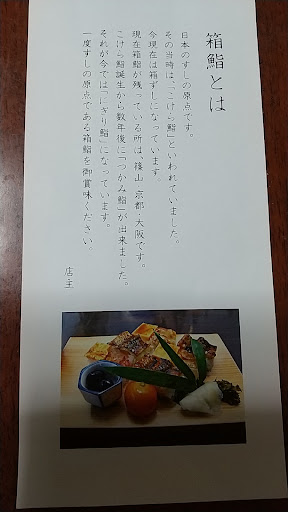 箱鮨とは
日本のすしの原点です。
その当時は、「こけら鮨」といわれていました。
今現在は箱ずしになっています。
現在箱鮨が残っている所は、篠山 京都 大阪です。
こけら鮨誕生から数年後に「つかみ鮨」が出来ました。
それが今では「にぎり鮨」になっています。
一度すしの原点である箱鮨を御賞味ください。
店主